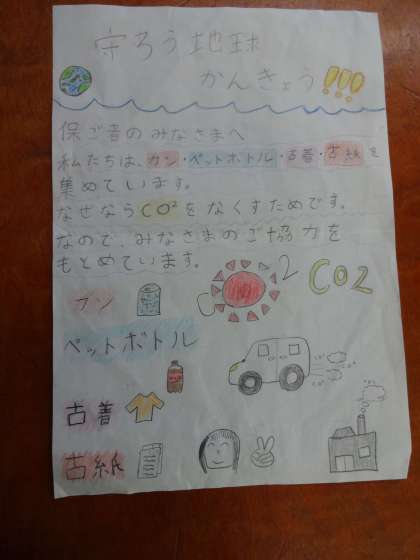 守ろう地球
かんきょう!!!
保ご者のみなさまへ
私たちは、カン・ペットボトル・古着・古紙を
集めています。
なぜならCO²をなくすためです。
なので、みなさまのご協力を
もとめています。
CO2
カン
ペットボトル
古着
古紙